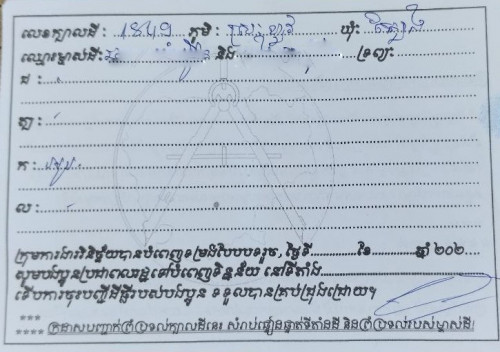 លេខក្បាលដី : 1849 ភូមិ : ស្រះខ្លូវ ឃុំ:
ឈ្មោះម្ចាស់ដី: និង ទ្រព្យ:
ជ :
ត្បូ :
ក :
ល :
ក្រុមការងារវិនិច្ឆ័យបានបំពេញទម្រង់បែបបទរួច, ថ្ងៃទី ខែ ឆ្នាំ ២០២
សូមបងប្អូនប្រជាពលរដ្ឋទៅបំពេញទិន្នន័យ នៅទីតាំង
ទើបការចុះបញ្ជីដីធ្លីរបស់បងប្អូន ទទួលបានគ្រប់ជ្រុងជ្រោយ។
***
**** ក្រដាសបញ្ជាក់ព្រំប្រទល់ក្បាលដីនេះ សំរាប់ផ្ទៀងផ្ទាត់ទីតាំងដី និងព្រំប្រទល់របស់ម្ចាស់ដី!